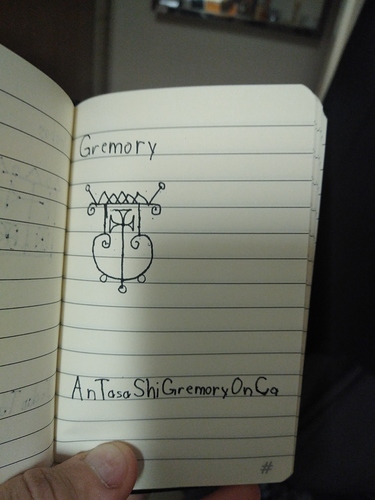 Gremory
AnTasaShiGremoryOnCa
#